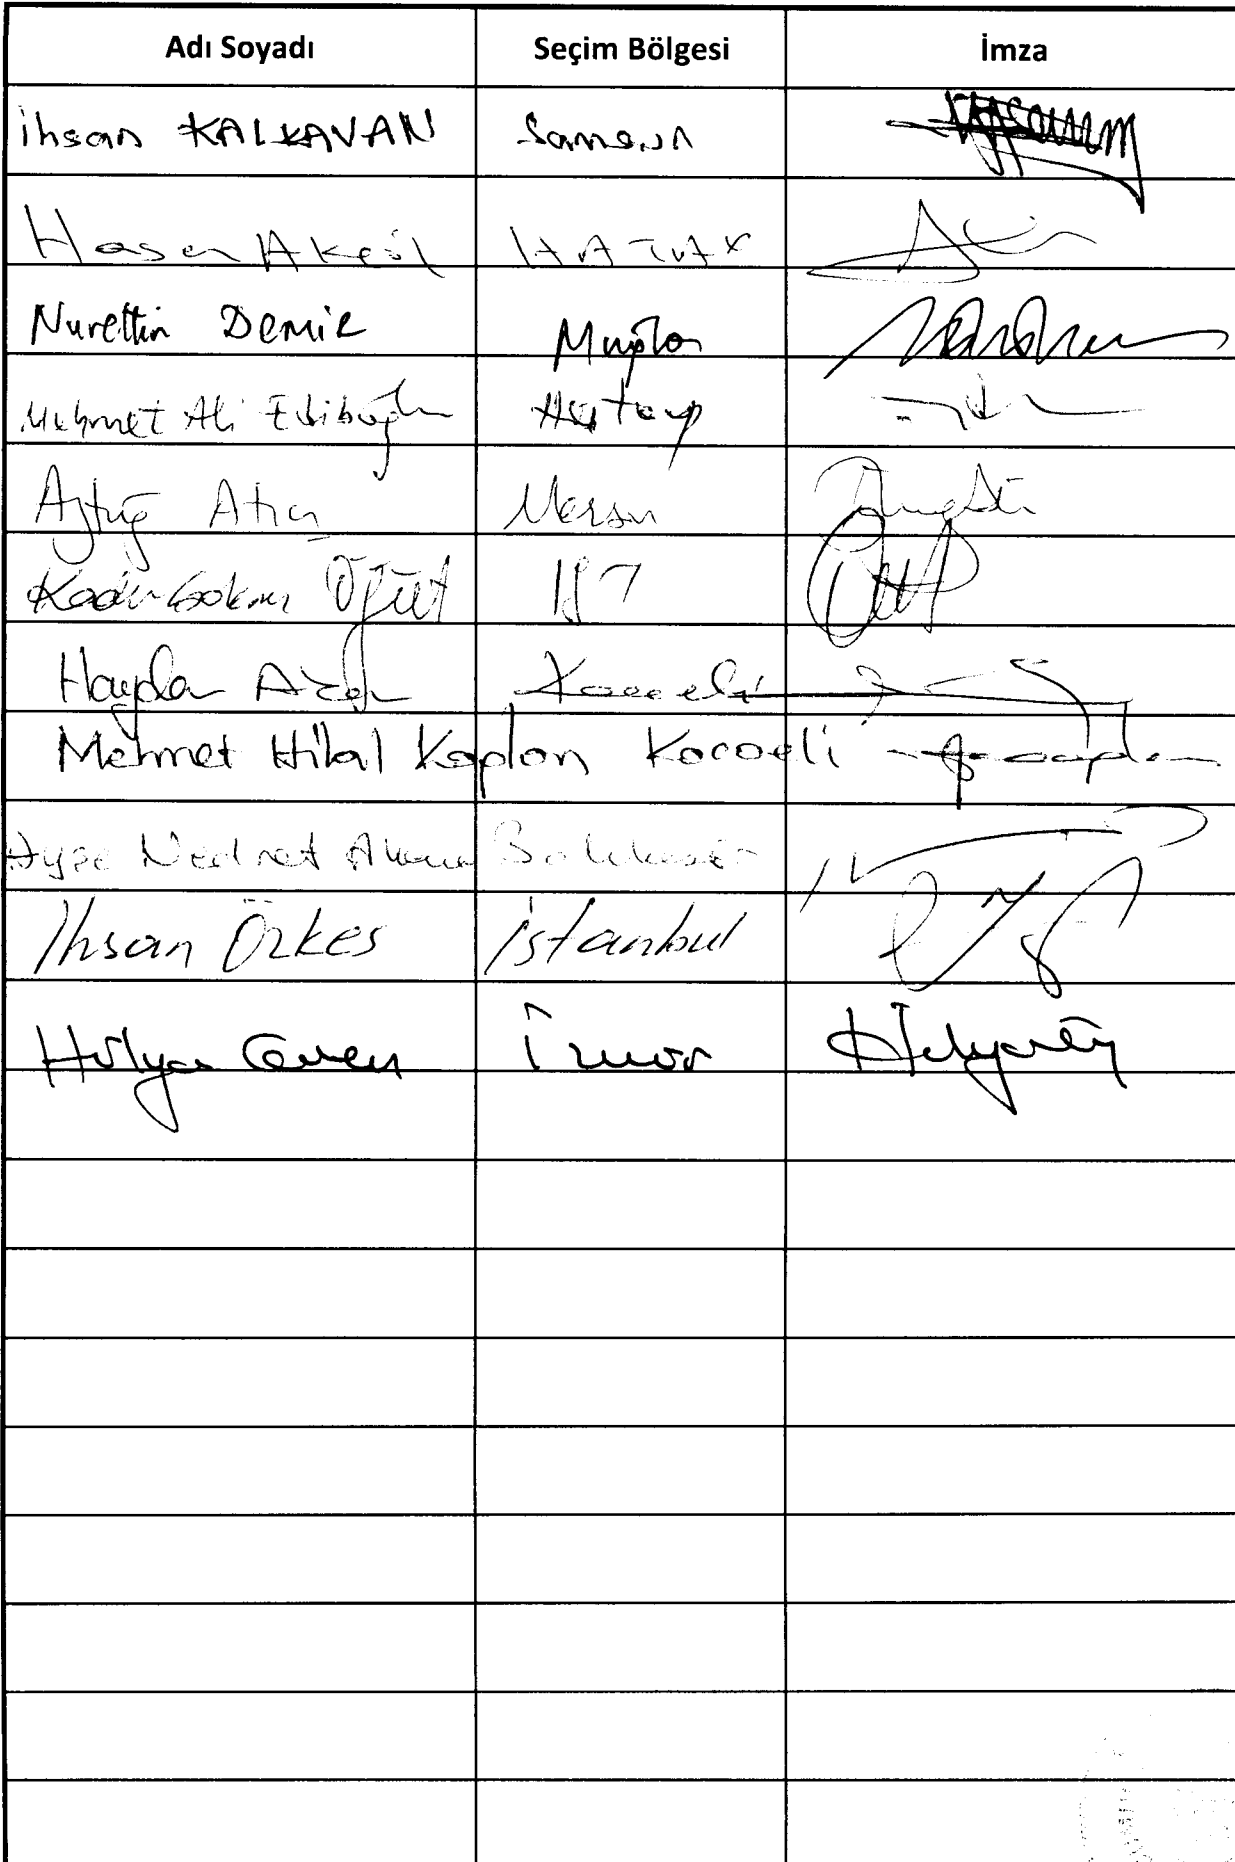 Adı Soyadı Seçim Bölgesi İmza
İhsan KALKAVAN Samsun
Hasan Akgöl HATAY
Nurettin Demir Muğla
Mehmet Ali Ediboğlu Hatay
Aytuğ Atıcı Mersin
Kadir Gökmen Öğüt İST
Haydar Akar Kocaeli
Mehmet Hilal Kaplan Kocaeli
Ayşe Nedret Akova Balıkesir
İhsan Özkes İstanbul
Hülya Güven İzmir